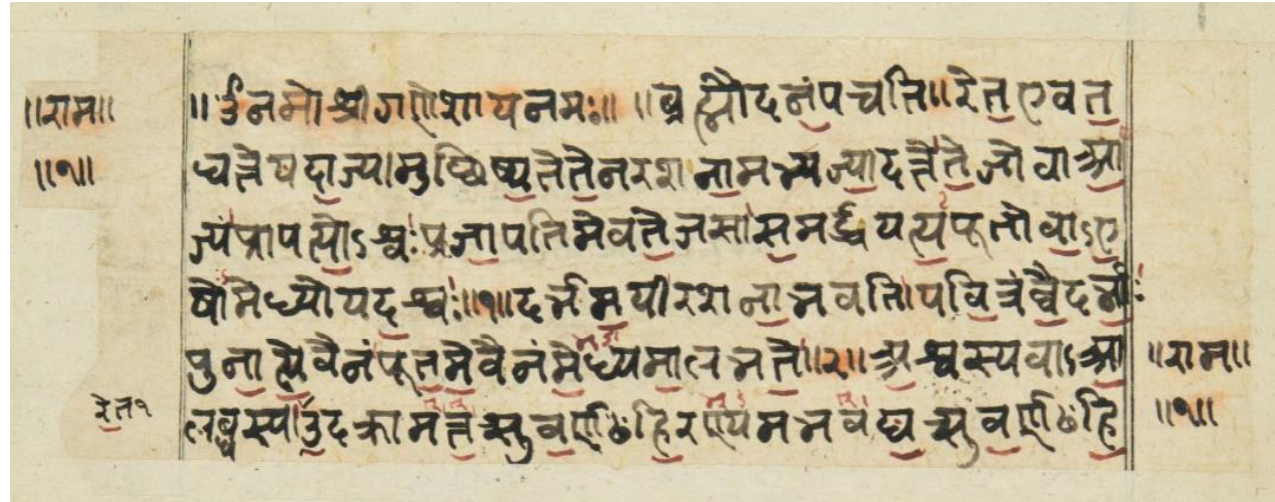 ॥राम॥
॥१॥
॥ॐनमोश्रीगणेशायनमः॥ ॥ब्रह्मौदनंपचति॥रेतएवत
द्धत्तेयदाज्यमुच्छिष्यतेतेनरशनामभ्यज्यादत्तेतेजोवाआ
ज्यंप्राजापत्योऽश्वःप्रजापतिमेवतेजसासमर्द्धयत्यपूतोवाऽए
षोमेध्योयदश्वः॥१॥दर्भमयीरशनाभवति।पवित्रंवैदर्भाः
पुनात्येवैनंपूतमेवैनंमेध्यमालभते॥२॥अश्वस्यवाऽआ
लब्धस्यरेतउदक्रामत्तत्सुवर्णꣳहिरण्यमभवद्यत्सुवर्णꣳहि
रेत१
॥राम॥
॥१॥